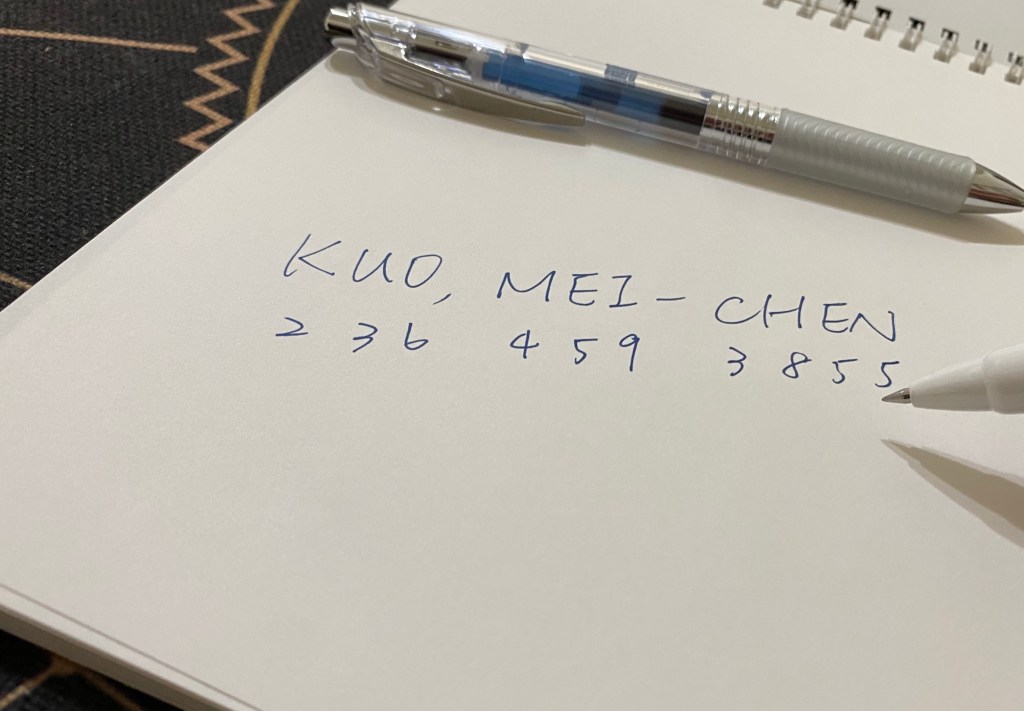 KUO, MEI-CHEN
2 3 6 4 5 9 3 8 5 5